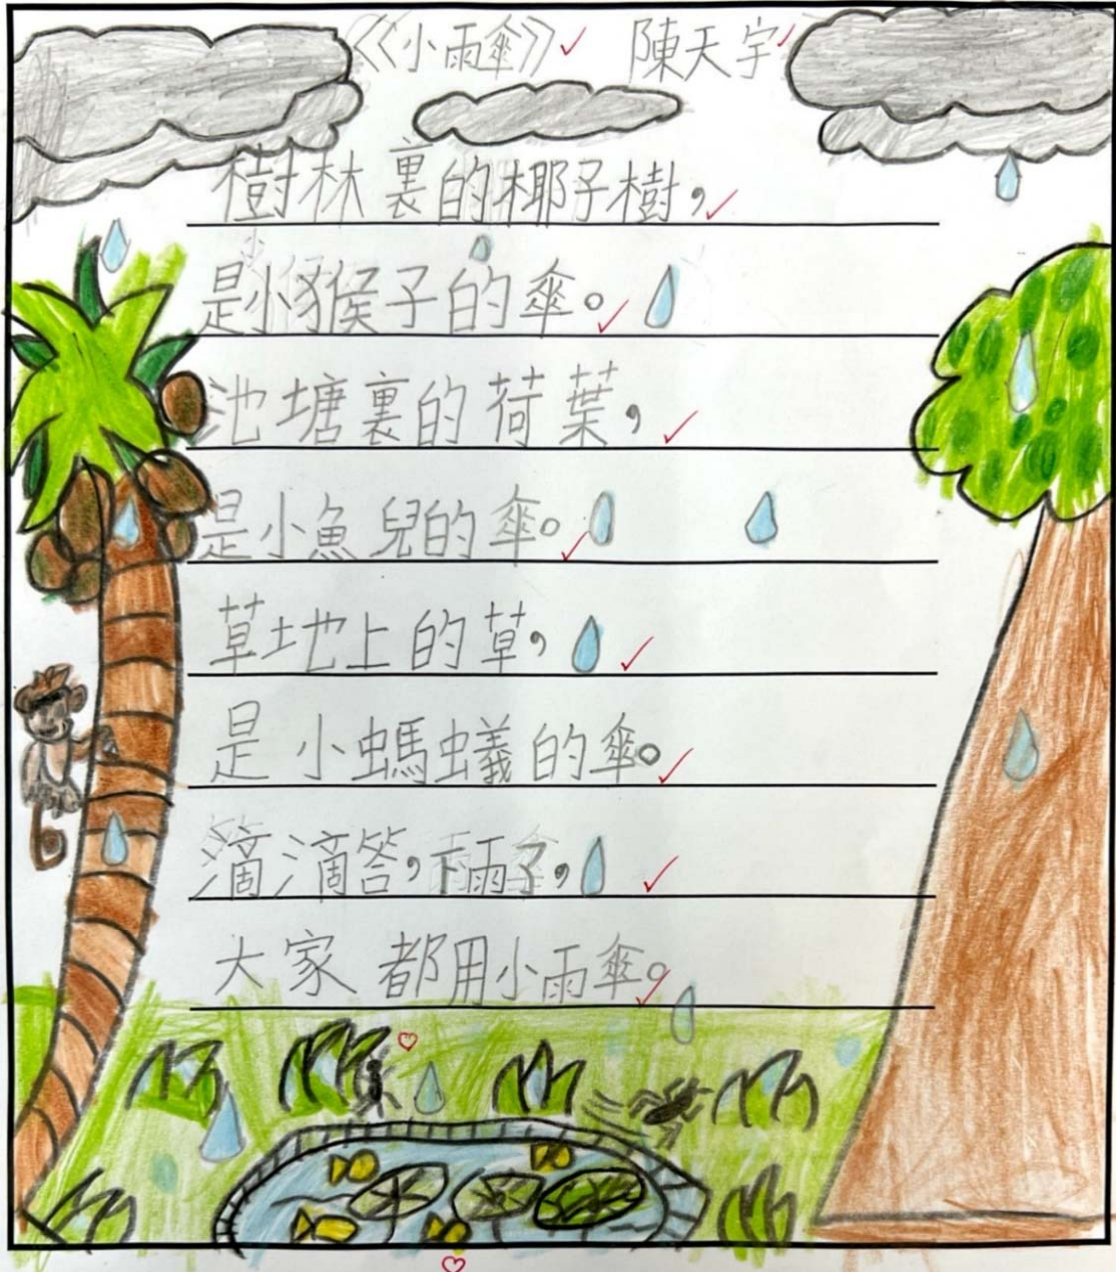 《小雨傘》 陳天宇
樹林裏的椰子樹，
是小猴子的傘。
池塘裏的荷葉，
是小魚兒的傘。
草地上的草，
是小螞蟻的傘。
滴滴答，下雨了，
大家都用小雨傘。